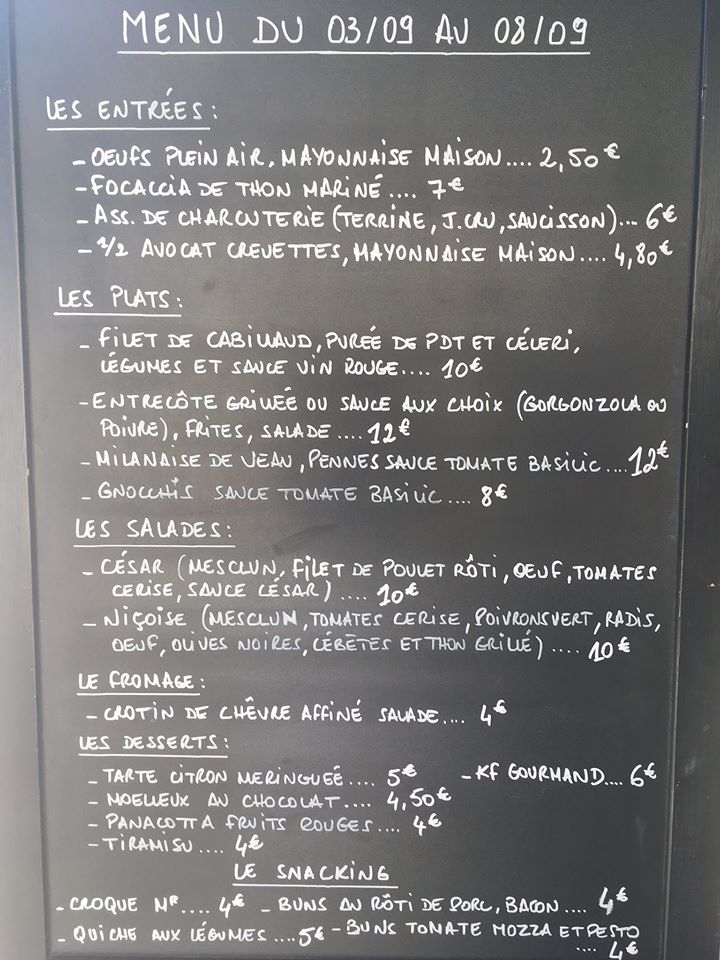 MENU DU 03/09 AU 08/09
LES ENTRÉES :
- OEUFS PLEIN AIR, MAYONNAISE MAISON.... 2,50€
- FOCACCIA DE THON MARINÉ .... 7€
- ASS. DE CHARCUTERIE (TERRINE, J.CRU, SAUCISSON)... 6€
- 1/2 AVOCAT CREVETTES, MAYONNAISE MAISON.... 4,80€
LES PLATS :
- FILET DE CABILLAUD, PURÉE DE PDT ET CÉLERI,
LÉGUMES ET SAUCE VIN ROUGE.... 10€
- ENTRECÔTE GRILLÉE OU SAUCE AUX CHOIX (GORGONZOLA OU
POIVRE), FRITES, SALADE .... 12€
- MILANAISE DE VEAU, PENNES SAUCE TOMATE BASILIC.... 12€
- GNOCCHIS SAUCE TOMATE BASILIC.... 8€
LES SALADES :
- CÉSAR (MESCLUN, FILET DE POULET RÔTI, OEUF, TOMATES
CERISE, SAUCE CÉSAR) .... 10€
- NIÇOISE (MESCLUN, TOMATES CERISE, POIVRONS VERT, RADIS,
OEUF, OLIVES NOIRES, CÉBÈTES ET THON GRILLÉ) .... 10€
LE FROMAGE :
- CROTIN DE CHÊVRE AFFINÉ SALADE.... 4€
LES DESSERTS :
- TARTE CITRON MERINGUEÉ .... 5€ - KF GOURMAND.... 6€
- MOELLEUX AU CHOCOLAT.... 4,50€
- PANACOTTA FRUITS ROUGES.... 4€
- TIRAMISU.... 4€
LE SNACKING
- CROQUE MR .... 4€ - BUNS AU RÔTI DE PORC, BACON .... 4€
- QUICHE AUX LÉGUMES .... 5€ - BUNS TOMATE MOZZA ET PESTO
.... 4€